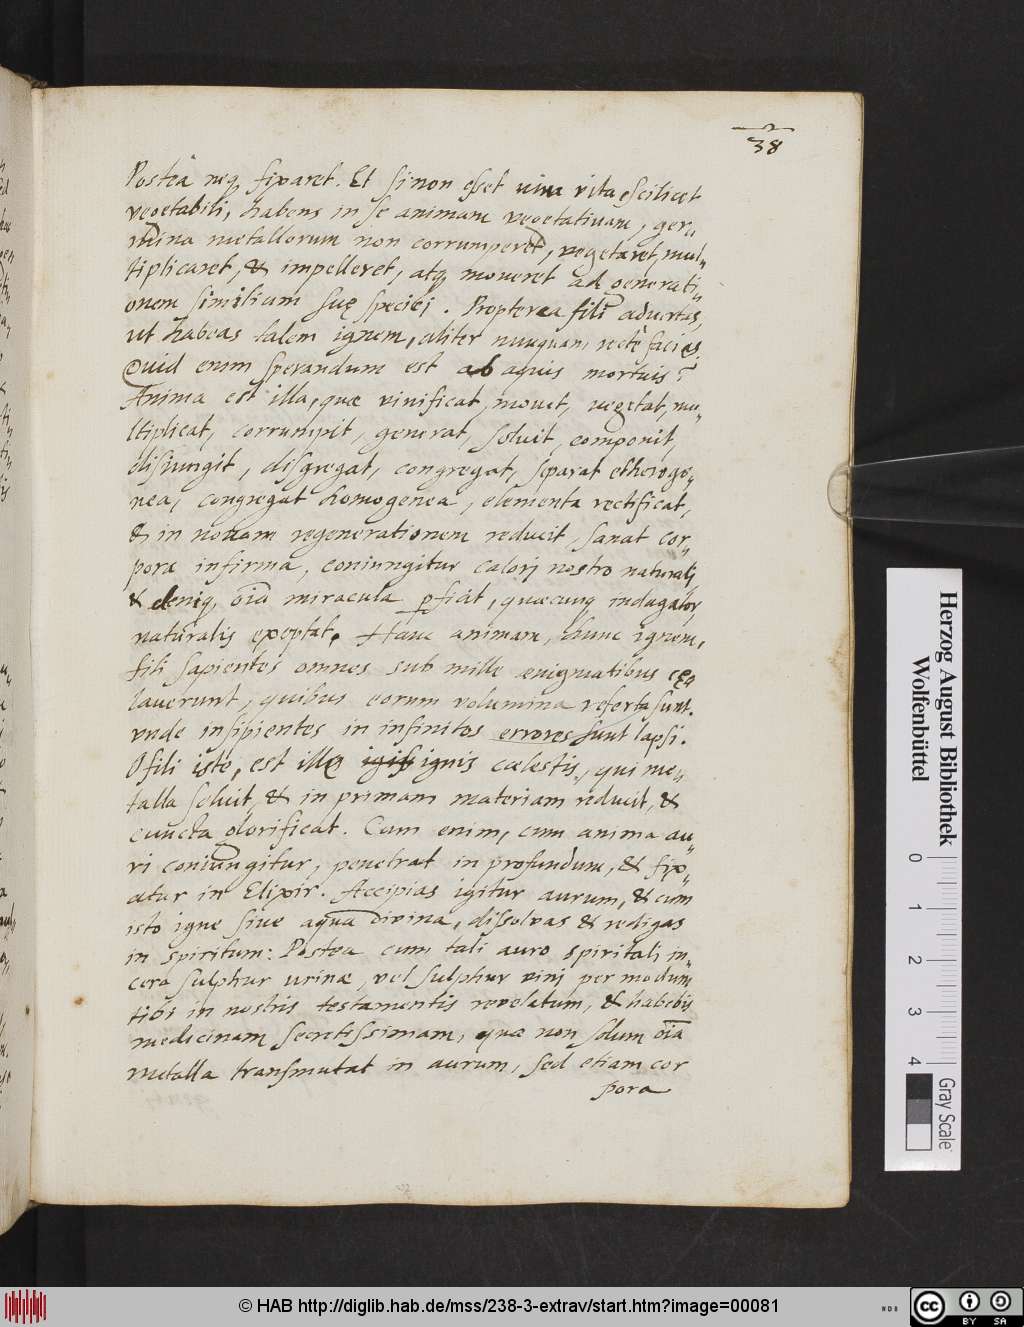 38
Postea neq, fixaret. Et si non esset viva vita scilicet
vegetabili, habens in se animam vegetativam, ger„
mina metallorum non corrumperet, vegetaret, mul„
tiplicaret, & impelleret, atq moveret ad generati„
onem similiam suę speciei. Propterea fili advertas,
ut habeas talem ignem, aliter nunquam rectè facies.
Quid enim sperandum est ab aquis mortuis?
Anima est illa, quæ vivificat, movet, vegetat, mu„
ltiplicat, corrumpit, generat, solvit, componit,
disiungit, disgregat, congregat, separat etherogo„
nea, congregat homogenea, elementa rectificat,
& in novam regenerationem reducit, sanat cor„
pora infirma, coniungitur calori nostro naturali,
& deniq, oīa miracula pficit, quæcunq indagator
naturalis exeptat. Hanc animam, hunc ignem,
fili sapientes omnes sub mille enigmatibus cęa
laverunt, quibus eorum volumina referta sunt.
vnde insipientes in infinitos errores sunt lapsi.
O fili iste, est ille ignis cælestis, qui me„
talla solvit, & in primam materiam reducit, &
cuncta glorificat. Cum enim, cum anima au„
ri coniungitur, penetrat in profundum, & fix„
atur in Elixir. Accipias igitur aurum, & cum
isto igne sive aqua divina, dissolvas & redigas
in spiritum: Postea cum tali auro spiritali in„
cera sulphur urinæ, vel sulphur vini per modum
tibi in nostris testamentis revelatum, & habebis
medicinam secretissimam, quæ non solum oīa
metalla transmutat in aurum, sed etiam cor
pora
Herzog August Bibliothek
Wolfenbüttel
0 1 2 3 4
Gray Scale
© HAB http://diglib.hab.de/mss/238-3-extrav/start.htm?image=00081
cc BY SA